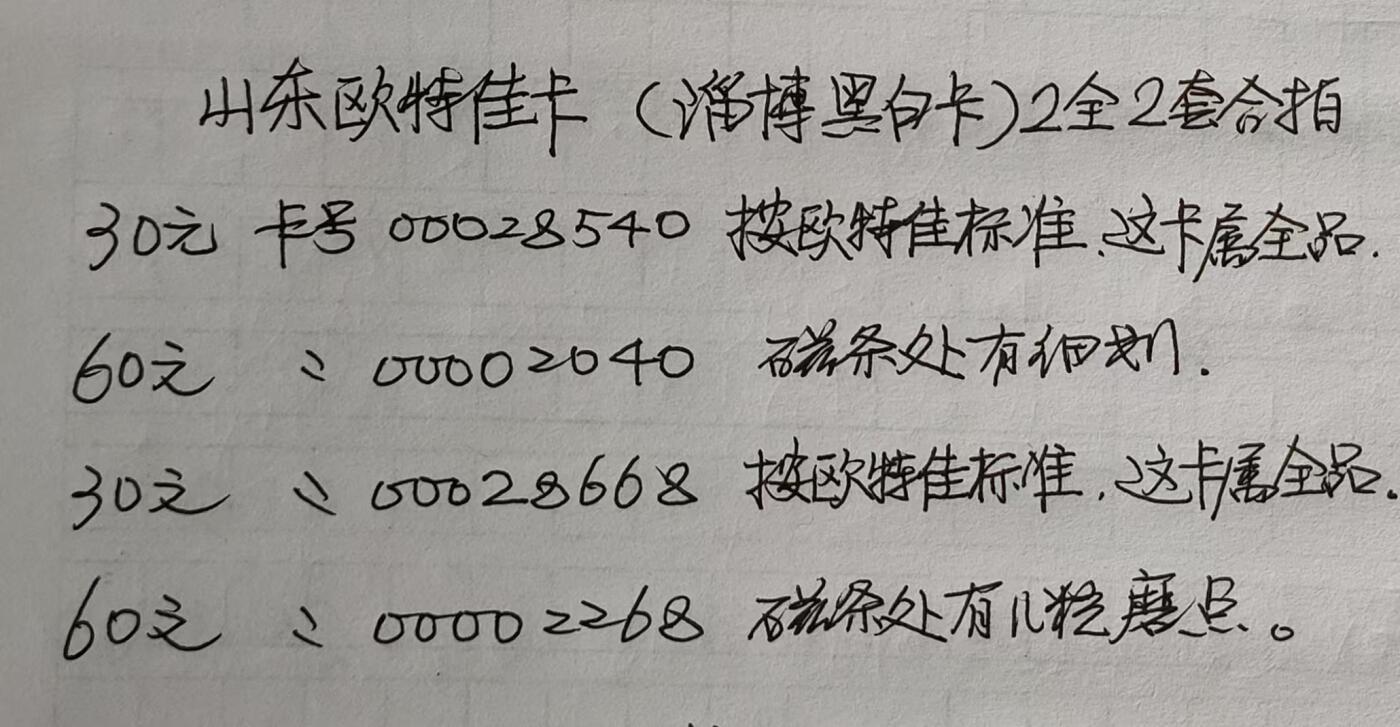 山东欧特佳卡（淄博黑白卡）2全2套合拍
30元 卡号 00028540 按欧特佳标准、这卡属全品.
60元 〃 00002040 磁条处有细划.
30元 〃 00028668 按欧特佳标准，这卡属全品.
60元 〃 00002268 磁条处有几粒磨点。